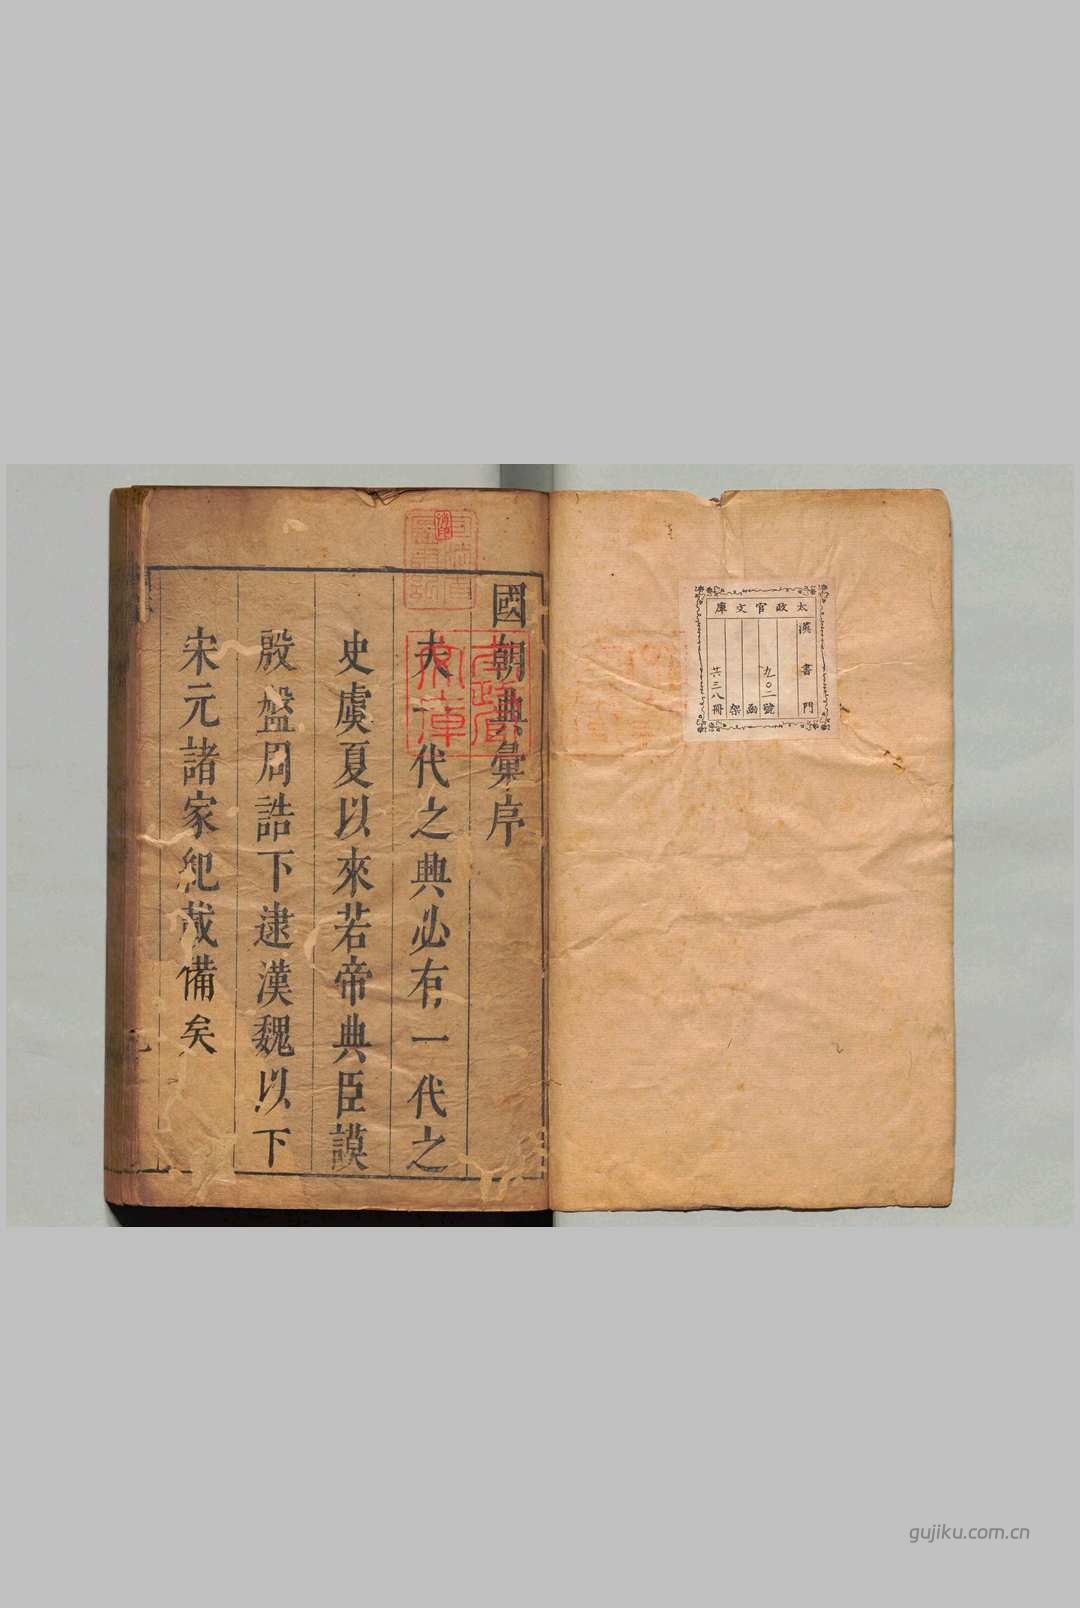 太政官文庫
漢書門
九〇二號
函
架
共三八冊
國朝典彙序
夫一代之典必有一代之
史虞夏以來若帝典臣謨
殷盤周誥下逮漢魏以下
宋元諸家紀載備矣
太政官文庫
gujiku.com.cn